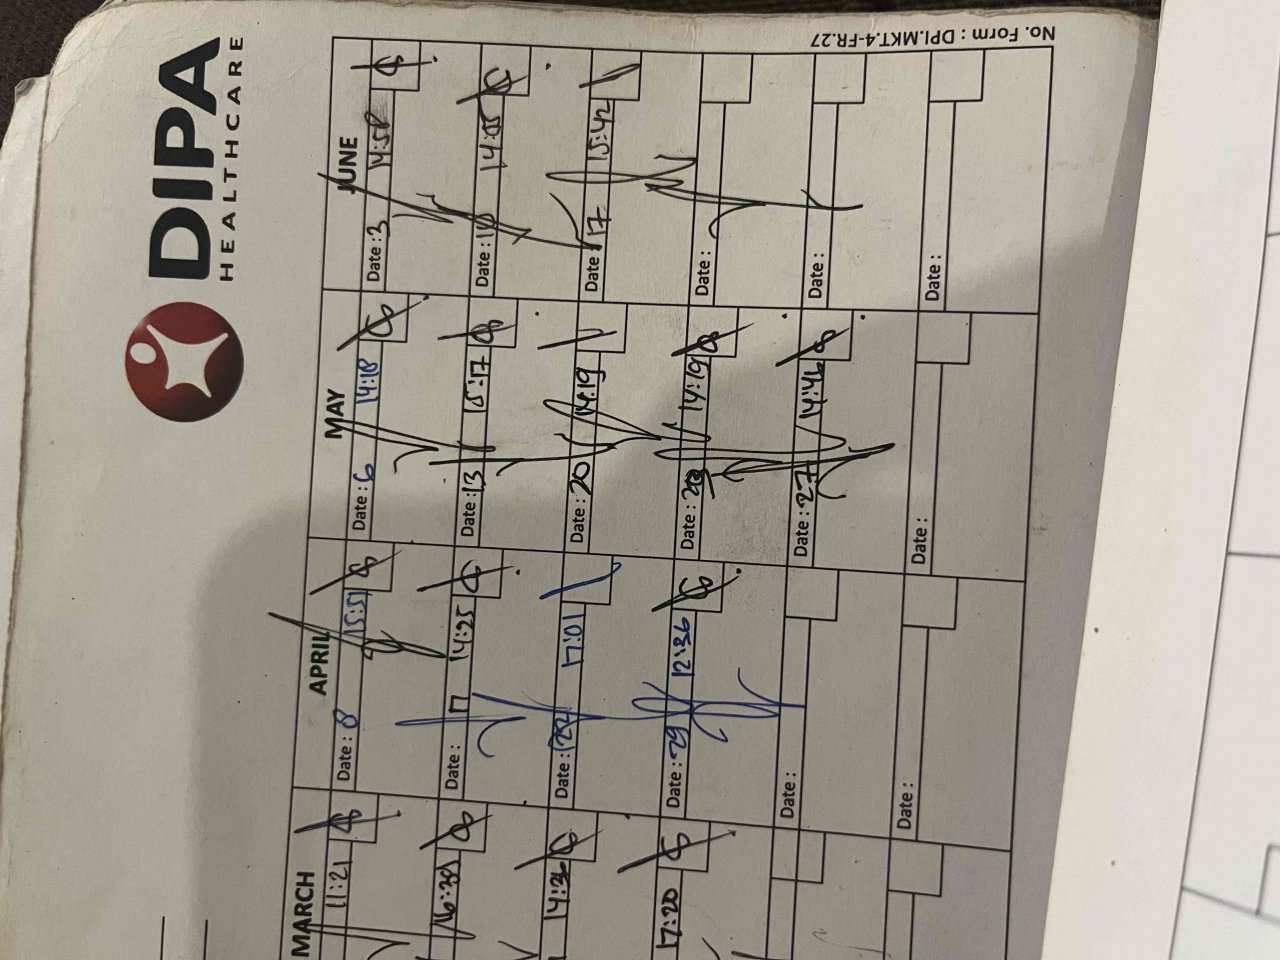 DIPA
HEALTHCARE
No. Form : DPI.MKT.4-FR.27
MARCH
11:21
16:39
14:36
17:20
APRIL
Date : 8 15:51
Date : 17 14:25
Date : 22 17:01
Date : 29 12:36
Date :
Date :
MAY
Date : 6 14:18
Date : 13 15:17
Date : 20 14:19
Date : 14:19
Date : 27 14:46
Date :
JUNE
Date : 3 14:58
Date : 10 14:05
Date : 17 15:42
Date :
Date :
Date :